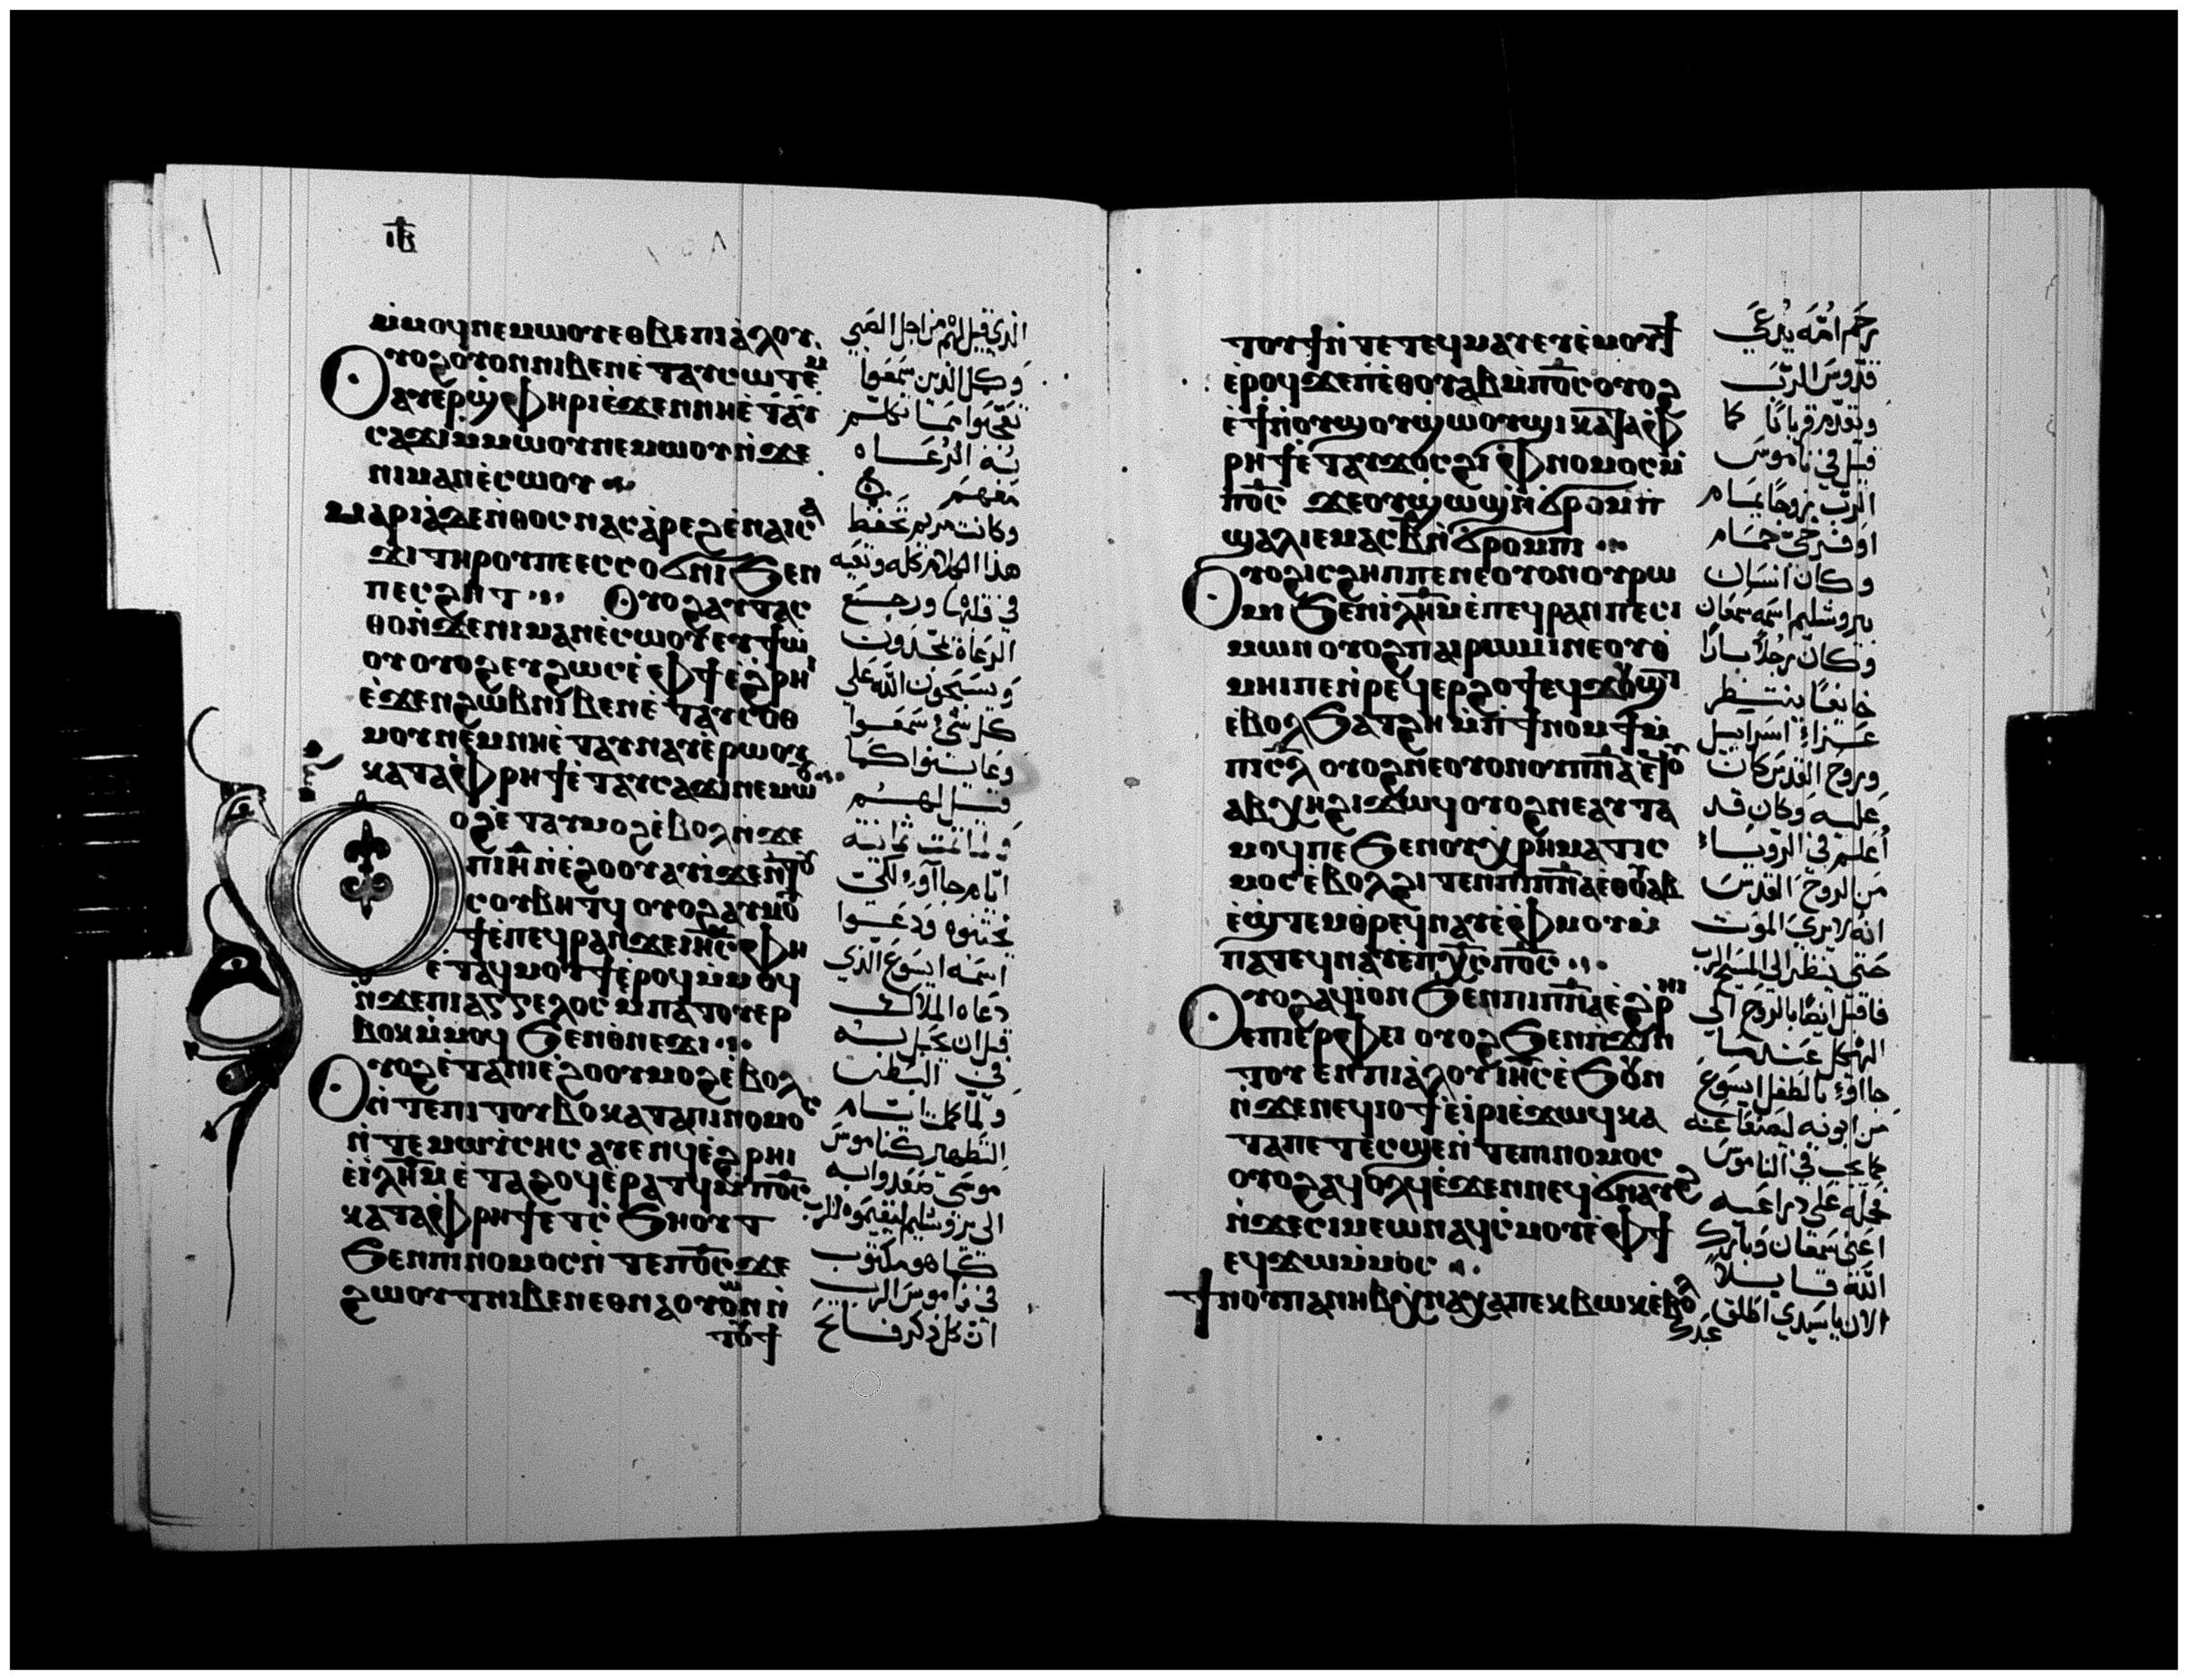 ⲓⲃ
ⲙ̀ⲙⲟϥⲛⲉⲙⲱⲟⲩⲉⲑⲃⲉⲡⲓⲁ̀ⲗⲟⲩ.
ⲟⲩⲟϩⲟⲩⲟⲛⲛⲓⲃⲉⲛⲉ̀ⲧⲁⲩⲥⲱⲧⲉⲙ
ⲁⲩⲉⲣϣ̀ⲫⲏⲣⲓⲉ̀ϫⲉⲛⲛⲏⲉ̀ⲧⲁⲩ
ⲥⲁϫⲓⲙ̀ⲙⲱⲟⲩⲛⲉⲙⲱⲟⲩⲛ̀ϫⲉ
ⲛⲓⲙⲁⲛⲉ̀ⲥⲱⲟⲩ
ⲙⲁⲣⲓⲁ̀ⲇⲉⲛ̀ⲑⲟⲥⲛⲁⲥⲁ̀ⲣⲉϩⲉ̀ⲛⲁⲓⲥⲁ
ϫⲓⲧⲏⲣⲟⲩⲡⲉⲉⲥⲥⲟϭⲛⲓϧⲉⲛ
ⲡⲉⲥϩⲏⲧ ⲟⲩⲟϩⲁⲩⲧⲁⲥ
ⲑⲟⲛ̀ϫⲉⲛⲓⲙⲁⲛⲉ̀ⲥⲱⲟⲩⲉⲩϯⲱ̀
ⲟⲩⲟⲩⲟϩⲉⲩϩⲱⲥⲉ̀ⲫϯⲉ̀ϩⲣⲏⲓ
ⲉ̀ϫⲉⲛϩⲱⲃⲛⲓⲃⲉⲛⲉ̀ⲧⲁⲩⲥⲟⲑ
ⲙⲟⲩⲛⲉⲙⲛⲏⲉ̀ⲧⲁⲩⲛⲁⲩⲉ̀ⲣⲱⲟⲩ
ⲕⲁⲧⲁⲫ̀ⲣⲏϯⲉ̀ⲧⲁⲩⲥⲁϫⲓⲛⲉⲙⲱⲟⲩ
ⲟϩⲉ̀ⲧⲁⲩⲙⲟϩⲉ̀ⲃⲟⲗⲛ̀ϫⲉ
ⲡⲓⲏ̅ⲛ̀ⲉ̀ϩⲟⲟⲩⲁⲩⲓ̀ϫⲉⲛ̀ⲧⲟⲩ
ⲥⲟⲩⲃⲏⲧϥ ⲟⲩⲟϩⲁⲩⲙⲟⲩ
ϯⲉ̀ⲡⲉϥⲣⲁⲛϫⲉⲓⲏ̅ⲥ̅ⲫⲏ
ⲉ̀ⲧⲁϥⲙⲟⲩϯⲉ̀ⲣⲟϥⲙ̀ⲙⲟϥ
ⲛ̀ϫⲉⲡⲓⲁⲅⲅⲉⲗⲟⲥ ⲙⲡⲁⲧⲟⲩⲉⲣ
ⲃⲟⲕⲓⲙ̀ⲙⲟϥ ϧⲉⲛⲑ̀ⲛⲉϫⲓ
ⲟⲩⲟϩⲉ̀ⲧⲁⲛⲓⲉ̀ϩⲟⲟⲩⲙⲟϩⲉ̀ⲃⲟⲗ
ⲛ̀ⲧⲉⲡⲓⲧⲟⲩⲃⲟⲕⲁⲧⲁⲡⲓⲛⲟⲙⲟⲥ
ⲛ̀ⲧⲉⲙⲱⲩ̀ⲥⲏⲥ ⲁⲩⲉⲛϥⲉ̀ϩⲣⲏⲓ
ⲉ̀ⲓⲗⲏ̅ⲙ̅ⲉ̀ⲧⲁϩⲟϥⲉ̀ⲣⲁⲧϥⲙ̀ⲡⲟ̅ⲥ̅
ⲕⲁⲧⲁⲫ̀ⲣⲏϯⲉⲧⲥ̀ϧⲏⲟⲩⲧ
ϧⲉⲛⲡⲓⲛⲟⲙⲟⲥⲛ̀ⲧⲉⲡⲟ̅ⲥ̅ϫⲉ
ϩⲱⲟⲩⲧⲛⲓⲃⲉⲛⲉⲑⲛⲁⲟⲩⲱⲛⲛ̀
ⲧⲟⲩϯ
الذي قيل لهم من اجل الصبي
وكل الذين سمعوا
تعجبوا مما تكلم
به الرعاه
معهم
وكانت مريم تحفظ
هذا الكلام كله وتعيه
في قلبها ورجع
الرعاة يمجدون
ويسبحون الله على
كل شي سمعوا
وعاينوا كما
قيل لهم
ولما تمت ثمانية
ايام جاآوا لكي
يختنوه ودعوا
اسمه ايسوع الذي
دعاه الملاك
قبل ان يحبل به
في البطن
ولما كملت ايام
التطهير كناموس
موسى صعدوا به
الى يروشليم ليقيموه للرب
كما هو مكتوب
في ناموس الرب
ان كل ذكر فاتح
ⲧⲟⲩϯⲛ̀ⲧⲉⲧⲉϥⲙⲁⲩⲉⲩⲉ̀ⲙⲟⲩϯ
ⲉ̀ⲣⲟϥϫⲉⲡⲉ̀ⲑⲟⲩⲁⲃⲙ̀ⲡⲟ̅ⲥ̅ⲟⲩⲟϩ
ⲉ̀ϯⲛ̀ⲟⲩϣⲟⲩϣⲱⲟⲩϣⲓⲕⲁⲧⲁⲫ̀
ⲣⲏϯⲉ̀ⲧⲁⲩϫⲟⲥϩⲓⲫ̀ⲛⲟⲙⲟⲥⲙ̀
ⲡⲟ̅ⲥ̅ ϫⲉⲟⲩϣⲱϣⲛ̀ϭⲣⲟⲙⲡ
ϣⲁⲗⲓⲉⲙⲁⲥⲃ̅ⲛ̀ϭⲣⲟⲙⲡⲓ
ⲟⲩⲟϩⲓⲥϩⲏⲡⲡⲉⲛⲉⲟⲩⲟⲛⲟⲩⲣⲱ
ⲙⲓ ϧⲉⲛⲓ̀ⲗⲏ̅ⲙ̅ⲉ̀ⲡⲉϥⲣⲁⲛⲡⲉⲥⲓ
ⲙⲱⲛ ⲟⲩⲟϩⲡⲁⲓⲣⲱⲙⲓⲛⲉⲟⲩⲑ̀
ⲙⲏⲓⲡⲉⲛ̀ⲣⲉϥⲉⲣϩⲟϯⲉϥϫⲟⲩϣⲧ
ⲉ̀ⲃⲟⲗϧⲁⲧϩⲏ ⲙ̀ⲡⲓϯⲛⲟⲙϯⲙ̀
ⲡⲓⲥ̅ⲗ̅ ⲟⲩⲟϩⲛⲉⲟⲩⲟⲛⲟⲩⲡ̅ⲛ̅ⲁ̅ⲉϥⲟⲩ
ⲁⲃⲭⲏϩⲓϫⲱϥⲟⲩⲟϩⲛⲉⲁⲩⲧⲁ
ⲙⲟϥⲡⲉ ϧⲉⲛⲟⲩⲭⲣⲏⲙⲁⲧⲓⲥ
ⲙⲟⲥ ⲉ̀ⲃⲟⲗϩⲓⲧⲉⲛⲡⲓⲡ̅ⲛ̅ⲁ̅ⲉⲑⲟⲩⲁⲃ
ⲉ̀ϣⲧⲉⲙⲑⲣⲉϥⲛⲁⲩⲉ̀ⲫ̀ⲙⲟⲩⲙ̀
ⲡⲁⲧⲉϥⲛⲁⲩⲉ̀ⲡⲭ̅ⲥ̅ⲡⲟ̅ⲥ̅
ⲟⲩⲟϩⲁϥⲓⲟⲛ ϧⲉⲛⲡⲓⲡ̅ⲛ̅ⲁ̅ⲉ̀ϩⲣⲏⲓ
ⲉⲡⲓⲉⲣⲫⲉⲓ ⲟⲩⲟϩϧⲉⲛⲡ̀ϫⲓⲛ
ⲧⲟⲩⲉⲛⲡⲓⲁ̀ⲗⲟⲩⲓⲏ̅ⲥ̅ⲉ̀ϧⲟⲩⲛ
ⲛ̀ϫⲉⲛⲉϥⲓⲟϯⲉⲓ̀ⲣⲓⲉ̀ϫⲱϥⲕⲁ
ⲧⲁⲡⲉⲧⲉ̀ⲥϣⲉⲛ̀ⲧⲉⲡⲓⲛⲟⲙⲟⲥ
ⲟⲩⲟϩⲁϥⲟⲗϥⲉ̀ϫⲉⲛⲛⲉϥϭⲛⲁⲩϩ
ⲛ̀ϫⲉⲥⲓⲙⲉⲱⲛⲁϥⲥ̀ⲙⲟⲩⲉ̀ⲫϯ
ⲉϥϫⲱⲙ̀ⲙⲟⲥ
ϯⲛⲟⲩⲡⲁⲛⲏⲃⲭ̀ⲛⲁⲭⲁⲡⲉⲕⲃⲱⲕⲉ̀ⲃⲟⲗ
رحم امه يدعى
قدوس الرب
وتقدم قربانا كما
قيل في ناموس
الرب زوجا يمام
او فرخي حمام
وكان انسان
بيروشليم اسمه سمعان
وكان رجلا بارا
خايفا ينتظر
عزاء اسراييل
وروح القدس كان
عليه وكان قد
أعلم في الروياء
من الروح القدس
انه لا يرى الموت
حتى ينظر الى المسيح الرب
فاقبل ايضا بالروح الى
الهيكل عندما
جاآوا بالطفل ايسوع
من ابويه ليصنعا عنه
كما يجب في الناموس
فحمله على دراعيه
اعنى سمعان وبارك
الله قايلا
الان يا سيدي اطلق
عبدك